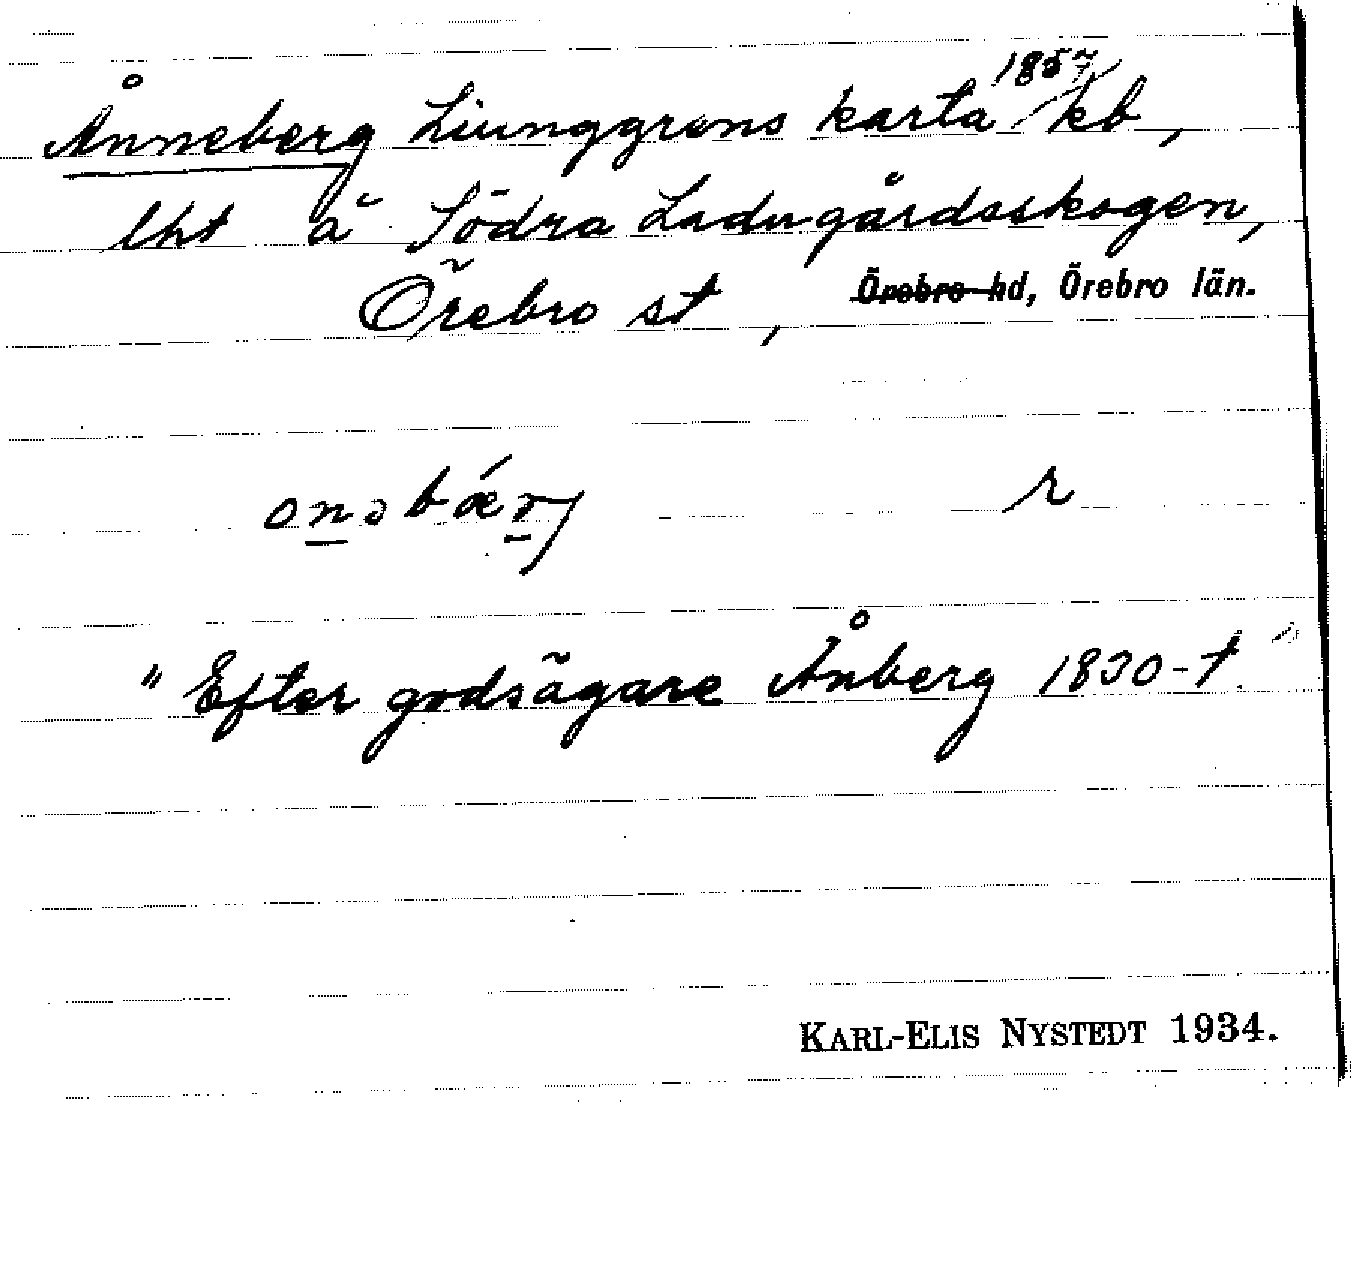 Ånneberg Liunggrens karta 1857 kb,
lht å Södra Ladugårdsskogen,
Örebro st, Örebro hd, Örebro län.
onəbǽrj r
"Efter godsägare Ånberg 1830-t."
KARL-ELIS NYSTEDT 1934.